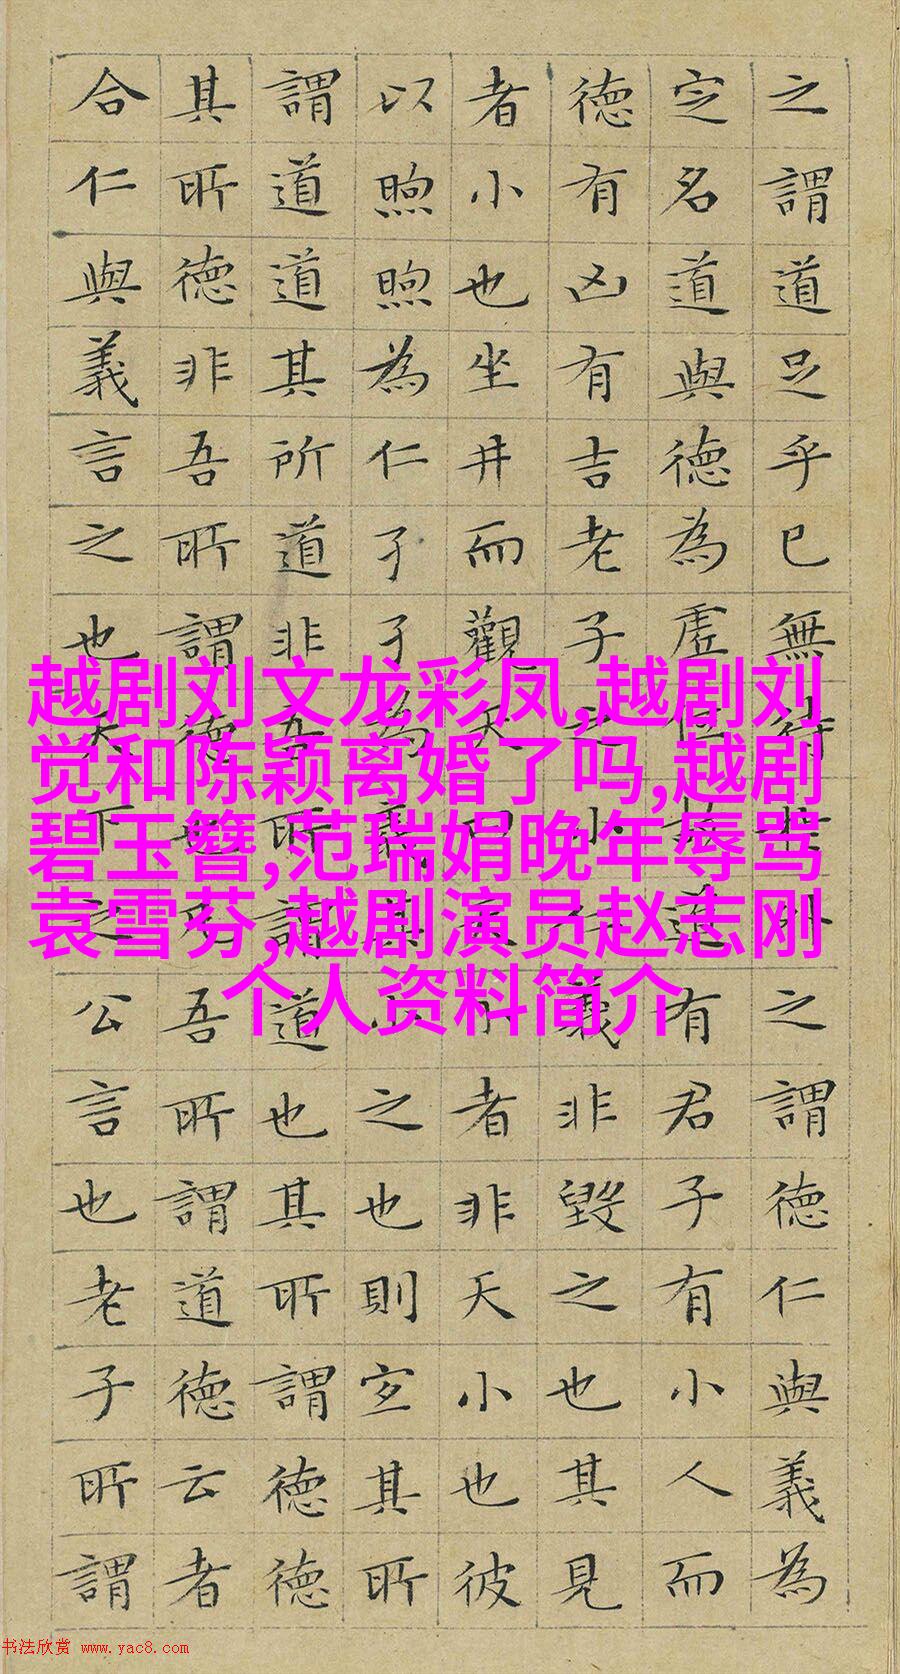 之謂道足乎已無待於外之謂德仁與義為
定名道與德為虛位故道有君子有小人而
德有凶有吉老子之小仁義非毀之也其見
者小也坐井而觀天曰天小者非天小也彼
以煦煦為仁孑孑為義其小之也則宜其所
謂道道其所道非吾所謂道也其所謂德德
其所德非吾所謂德也凡吾所謂道德云者
合仁與義言之也天下之公言也老子所謂
越剧刘文龙彩凤,越剧刘
觉和陈颖离婚了吗,越剧
碧玉簪,范瑞娟晚年辱骂
袁雪芬,越剧演员赵志刚
个人资料简介
书法欣赏 www.yac8.com